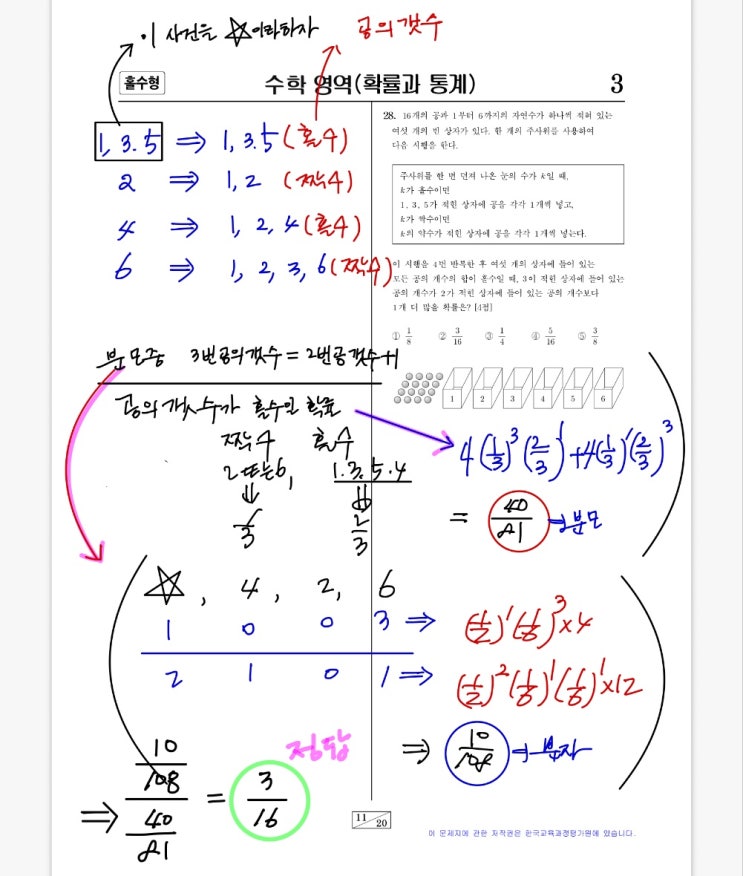 · 이 사건을 ☆이라하자 공의 갯수
홀수형
수학 영역(확률과 통계)
3
1, 3. 5 ⇒ 1, 3. 5 (홀수)
2 ⇒ 1, 2 (짝수)
4 ⇒ 1, 2, 4 (홀수)
6 ⇒ 1, 2, 3, 6 (짝수)
28. 16개의 공과 1부터 6까지의 자연수가 하나씩 적혀 있는
여섯 개의 빈 상자가 있다. 한 개의 주사위를 사용하여
다음 시행을 한다.
주사위를 한 번 던져 나온 눈의 수가 k일 때,
k가 홀수이면
1, 3, 5가 적힌 상자에 공을 각각 1개씩 넣고,
k가 짝수이면
k의 약수가 적힌 상자에 공을 각각 1개씩 넣는다.
이 시행을 4번 반복한 후 여섯 개의 상자에 들어 있는
모든 공의 개수의 합이 홀수일 때, 3이 적힌 상자에 들어 있는
공의 개수가 2가 적힌 상자에 들어 있는 공의 개수보다
1개 더 많을 확률은? [4점]
① 1/8 ② 3/16 ③ 1/4 ④ 5/16 ⑤ 3/8
1 2 3 4 5 6
분모중 3번공의갯수 = 2번공갯수+1
공의 갯수가 홀수인 확률
짝수 홀수
2또는6, 1. 3. 5. 4
⇓ ⇓
1/3 2/3
4(1/3)³(2/3)¹+4(1/3)¹(2/3)³
= 40/81 → 분모
☆, 4, 2, 6
1 0 0 3 ⇒ (1/2)¹(1/6)³×4
2 1 0 1 ⇒ (1/2)²(1/6)¹(1/6)¹×12
⇒ 10/108 → 분자
정답
⇒ 10/108 / 40/81 = 3/16
11/20
이 문제지에 관한 저작권은 한국교육과정평가원에 있습니다.